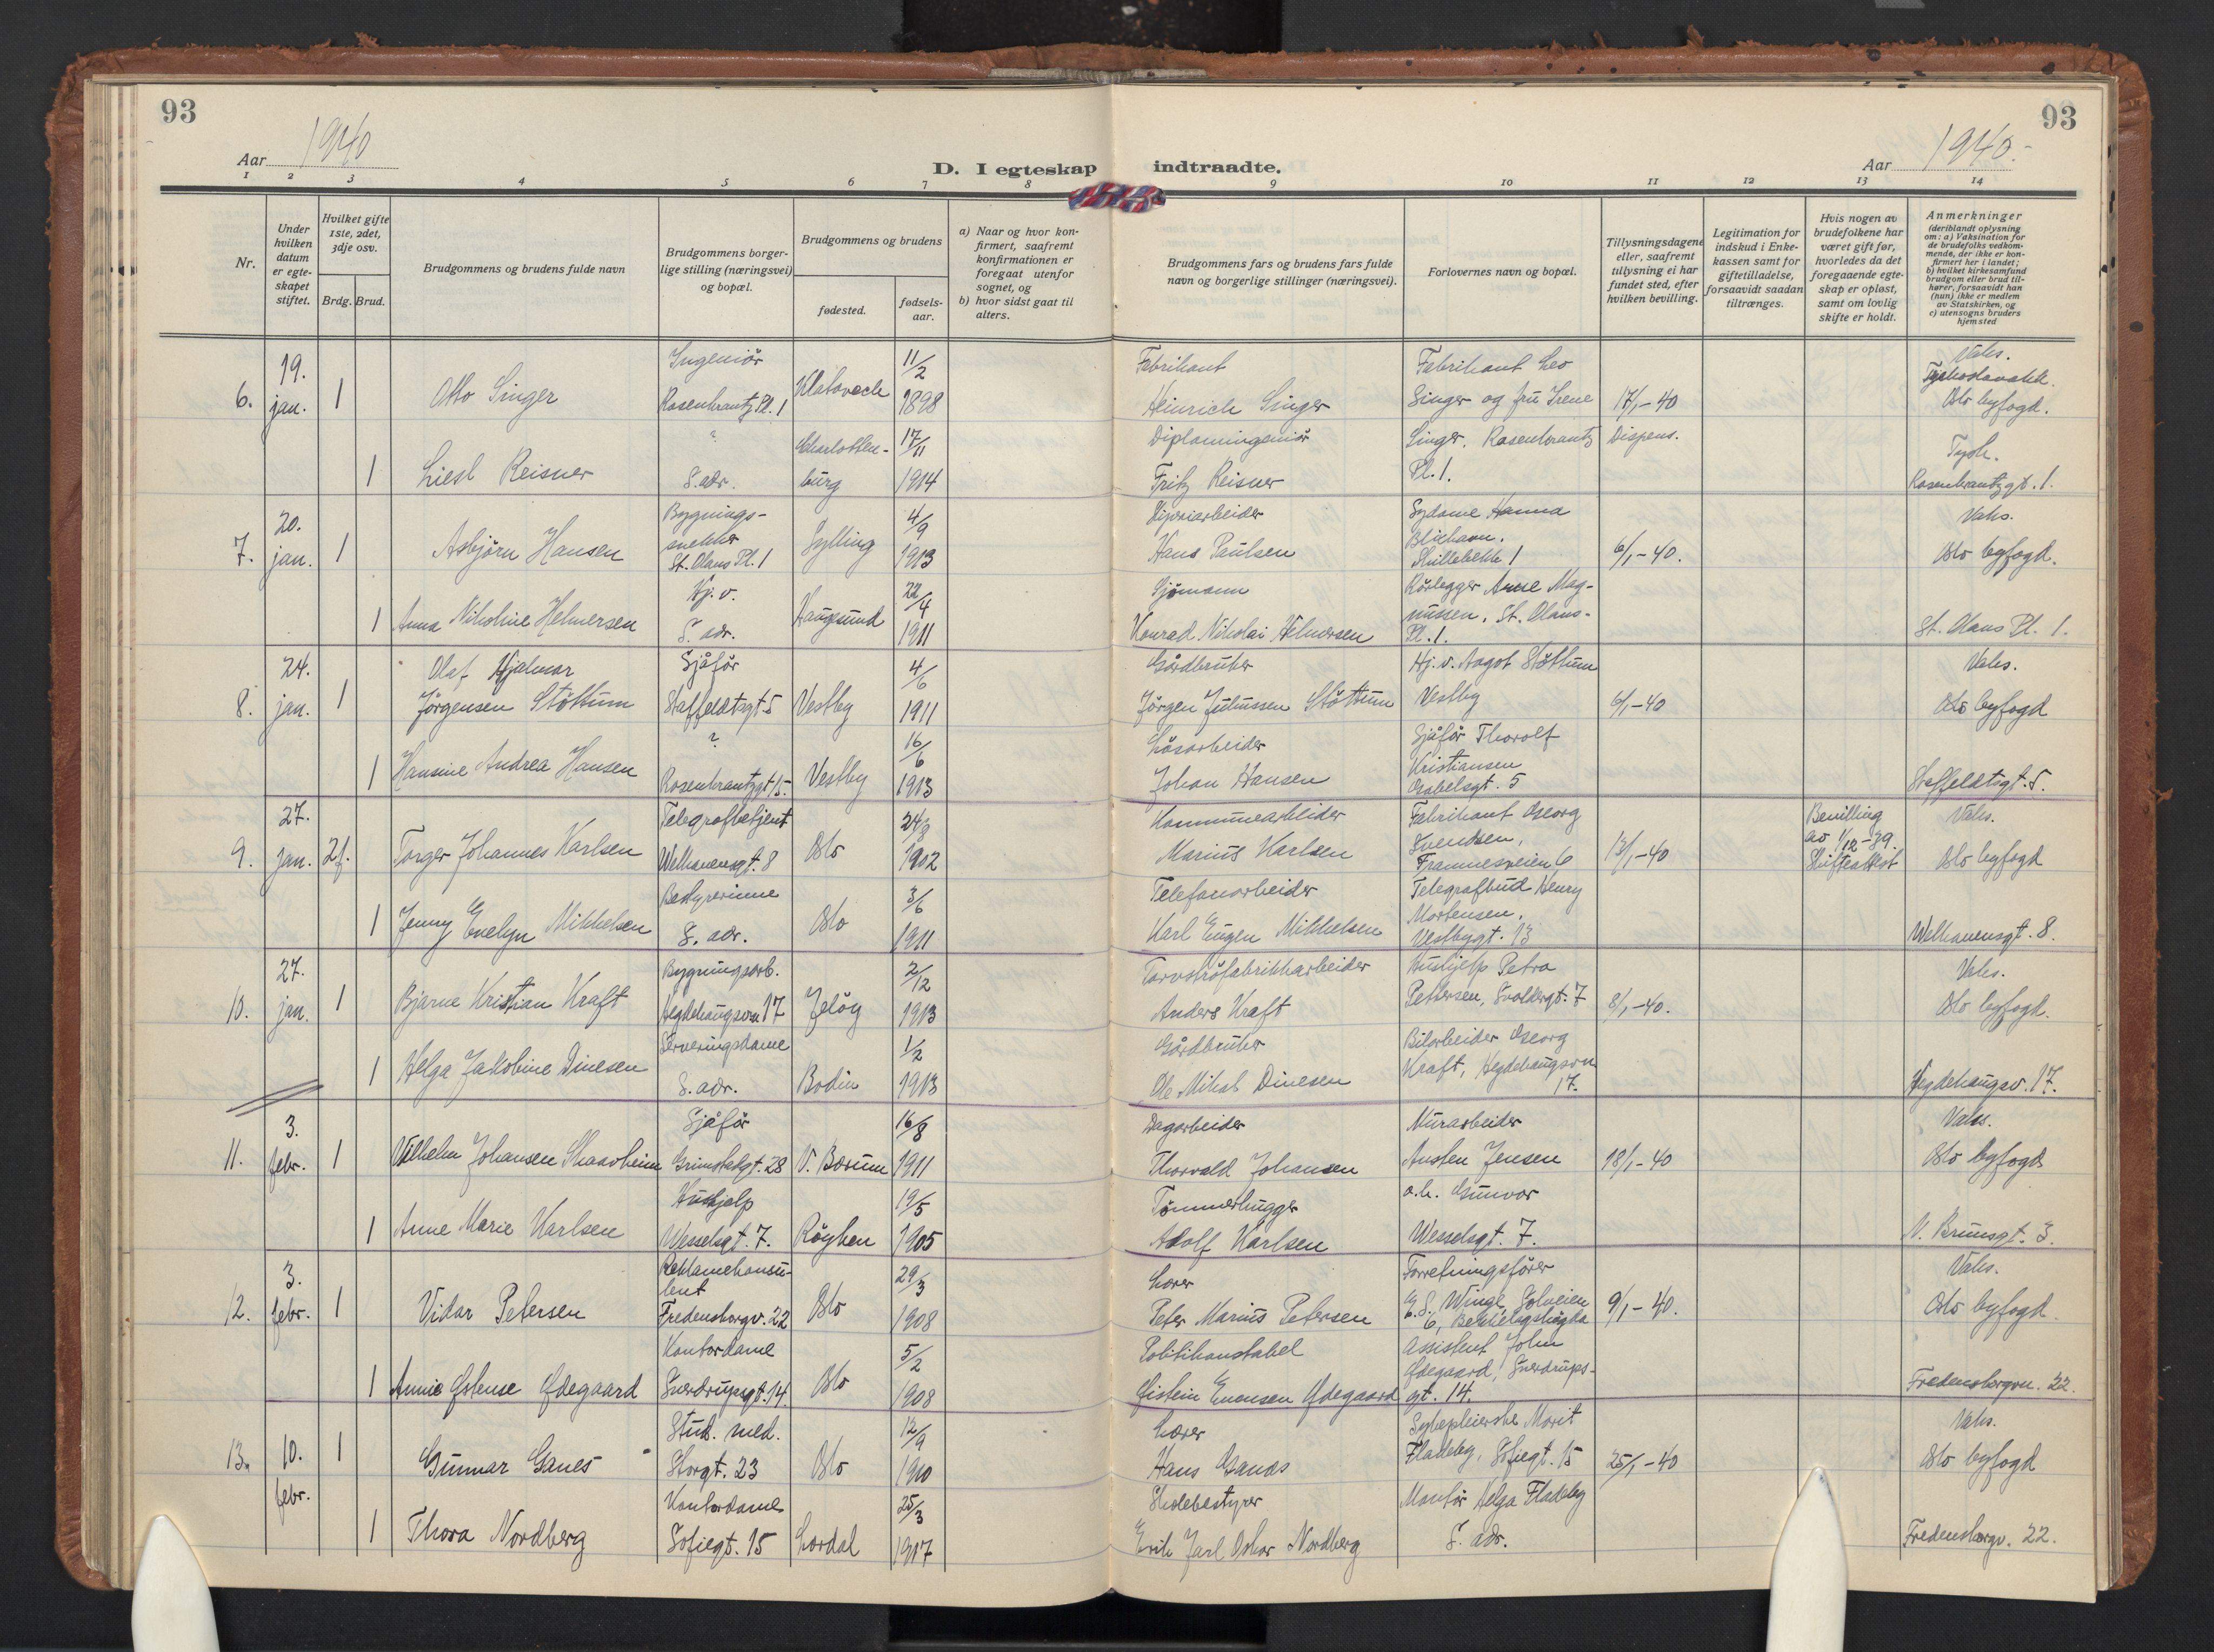 93
Aar 1940
D. I egteskap
indtraadte.
Aar 1940.-
93
1 2 3 4 5 6 7 8 9 10 11 12 13 14
Nr.
Under hvilken datum er egte-skapet stiftet.
Hvilket gifte 1ste, 2det, 3dje osv.
Brdg. Brud.
Brudgommens og brudens fulde navn
Brudgommens borger-lige stilling (næringsvei) og bopæl.
Brudgommens og brudens
fødested.
fødsels-aar.
a) Naar og hvor kon-firmert, saafremt konfirmationen er foregaat utenfor sognet, og
b) hvor sidst gaat til alters.
Brudgommens fars og brudens fars fulde navn og borgerlige stillinger (næringsvei).
Forlovernes navn og bopæl.
Tillysningsdagene eller, saafremt tillysning ei har fundet sted, efter hvilken bevilling.
Legitimation for indskud i Enke-kassen samt for giftetilladelse, forsaavidt saadan tiltrænges.
Hvis nogen av brudefolkene har været gift før, hvorledes da det foregaaende egte-skap er opløst, samt om lovlig skifte er holdt.
Anmerkninger
(deriblandt oplysning om: a) Vaksination for de brudefolks vedkom-mende, der ikke er kon-firmert her i landet; b) hvilket kirkesamfund brudgom eller brud til-hører, forsaavidt han (hun) ikke er medlem av Statskirken, og c) utensogns bruders hjemsted
6. 19. jan. 1 Otto Singer Ingeniør Rosenkrantz Pl. 1 11/2 1898 Fabrikant Heinrich Singer Fabrikant Leo Singer og fru Irene 17/1-40 Vaks. Oslo byfogd.
1 Liesl Reisner ? S. adr. Charlotten-burg 17/11 1914 Diplomingeniør Fritz Reisner Singer. Rosenkrantz Pl. 1. Dispens. Tysk. Rosenkrantzgt. 1.
7. 20. jan. 1 Asbjørn Hansen Bygnings-snekker St. Olavs Pl. 1 Sylling 4/9 1913 Hans Paulsen Sydame Hanna Skillebekk 1 6/1-40. Vaks. Oslo byfogd.
1 Anna Nikoline Helmersen Hj. v. S. adr. Haugsund 22/4 1911 Sjømann Konrad Nikolai Helmersen Rørlegger Arne Mag-nussen. St. Olavs-Pl. 1. St. Olavs Pl. 1.
8. 24. jan. 1 Olaf Hjalmar Jørgensen Støttum Sjåfør Staffeldtsgt. 5 Vestby 4/6 1911 Gårdbruker Jørgen Juliussen Støttum Hj. v. Aagot Støttum Vestby 6/1-40 Vaks. Oslo byfogd
1 Hansine Andrea Hansen ? Rosenkrantzgt. 15. Vestby 16/6 1913 Løsarbeider Johan Hansen Sjåfør Thorolf Kristiansen 5 Staffeldtsgt. 5.
9. 27. jan. 2 f. Torger Johannes Karlsen Telegrafbetjent Welhavensgt. 8 Oslo 24/8 1902 Kommunearbeider Marius Karlsen Fabrikant Georg Svendsen, Framnesveien 6 13/1-40 Bevilling av 1/12-39. Skifteattest Vaks. Oslo byfogd
1 Jenny Evelyn Mikkelsen Bestyrerinne S. adr. Oslo 3/6 1911 Telefonarbeider Karl Eugen Mikkelsen Telegrafbud Henry Mortensen. Vestbygt. 13 Welhavensgt. 8.
10. 27. jan. 1 Bjarne Kristian Kraft Bygningsarb. Hegdehaugsvn 17 Jeløy 2/12 1913 Torvstrøfabrikkarbeider Anders Kraft Hushjelp Petra Pettersen, Svoldergt. 7 8/1-40. Vaks. Oslo byfogd.
1 Helga Jakobine Dinesen Serveringsdame S. adr. Bodin 1/2 1913 Gårdbruker Ole Mikal Dinesen Bilarbeider Georg Kraft, Hegdehaugsvn 17. Hegdehaugsv. 17.
11. 3. febr. 1 Vilhelm Johansen Skaarheim Sjåfør Grimstadgt. 28 V. Bærum 16/8 1911 Dagarbeider Thorvald Johansen Murarbeider Austen Jensen 18/1-40 Vaks. Oslo byfogd
1 Anne Marie Karlsen Hushjelp Wesselsgt. 7. Røyken 19/5 1905 Tømmerhugger Adolf Karlsen Gunvor Wesselsgt. 7. N. Brunsgt. 3.
12. 3. febr. 1 Vidar Petersen Reklamekonsu-lent Fredensborgv. 22 Oslo 29/3 1908 Lærer Peter Marius Petersen Forretningsfører E. S. Winge, Solveien 6, Bekkelagshøgda 9/1-40. Vaks. Oslo byfogd.
1 Annie Østense Ødegaard Kontordame Sverdrupsgt. 14. Oslo 5/2 1908 Politikonstabel Øistein Evensen Ødegaard Assistent John Ødegaard, Sverdrups-gt. 14. Fredensborgvn. 22.
13. 10. febr. 1 Gunnar Ganes Stud. med. Storgt. 23 Oslo 12/9 1910 Lærer Hans Ganes Sykepleierske Marit Fladeby, Sofiegt. 15 25/1-40 Vaks. Oslo byfogd
1 Thora Nordberg Kontordame Sofiegt. 15 Lærdal 25/3 1917 Skolebestyrer Erik Jarl Oskar Nordberg Helga Fladeby S. adr. Fredensborgv. 22.